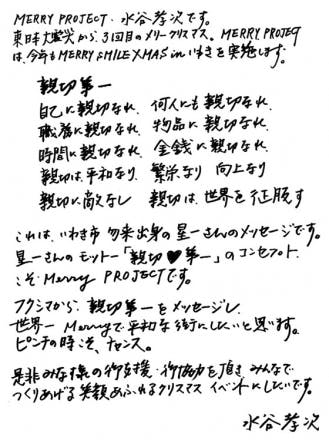 MERRY PROJECT・水谷孝次です。
東日本大震災から、3回目のメリークリスマス。MERRY PROJECT
は、今年もMERRY SMILE XMAS in いわきを実施します。
親切第一
自己に親切なれ、何人にも親切なれ
職務に親切なれ、物品に親切なれ
時間に親切なれ、金銭に親切なれ
親切は平和なり 繁栄なり 向上なり
親切に敵なし 親切は世界を征服す
これは、いわき市勿来出身の星一さんのメッセージです。
星一さんのモットー「親切♥第一」のコンセプト
こそMerry PROJECTです。
フクシマから、親切第一をメッセージし
世界一Merryで平和な街にしたいと思います。
ピンチの時こそ、チャンス。
是非みな様の御支援・御協力を頂き、みんなで
つくりあげる笑顔あふれるクリスマスイベントにしたいです。
水谷孝次